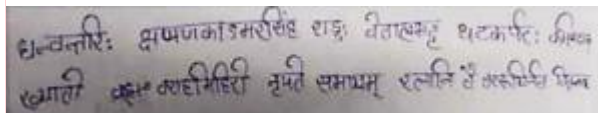 धन्वन्तरिः क्षपणकाऽमरसिंह शङ्कु वेतालभट्ट घटकर्परः
ख्यातो वराहमिहिरो नृपते सभायाम् रत्नानि वै वररुचिर्नव